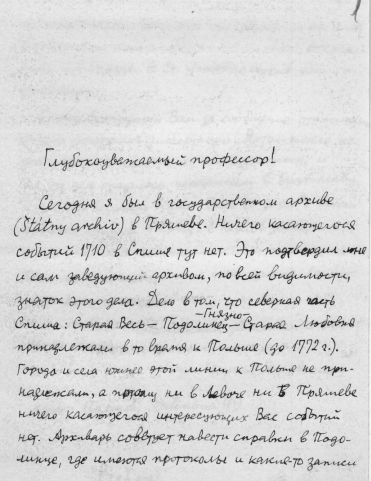 1
Глубокоуважаемый профессор!
Сегодня я был в государственном архиве
(Štátny archív) в Пряшеве. Ничего касающегося
событий 1710 в Спише тут нет. Это подтвердил мне
и сам заведующий архивом, по всей видимости,
знаток этого дела. Дело в том, что северная часть
– Гнязно –
Спиша: Старая Весь – Подолинец – Старая Любовня
принадлежали в то время к Польше (до 1772 г.).
Города и села южнее этой линии к Польше не при-
надлежали, а потому ни в Левоче ни в Пряшеве
ничего касающегося интересующих Вас событий
нет. Архиварь советует навести справки в Подо-
линце, где имеются протоколы и какие-то записи